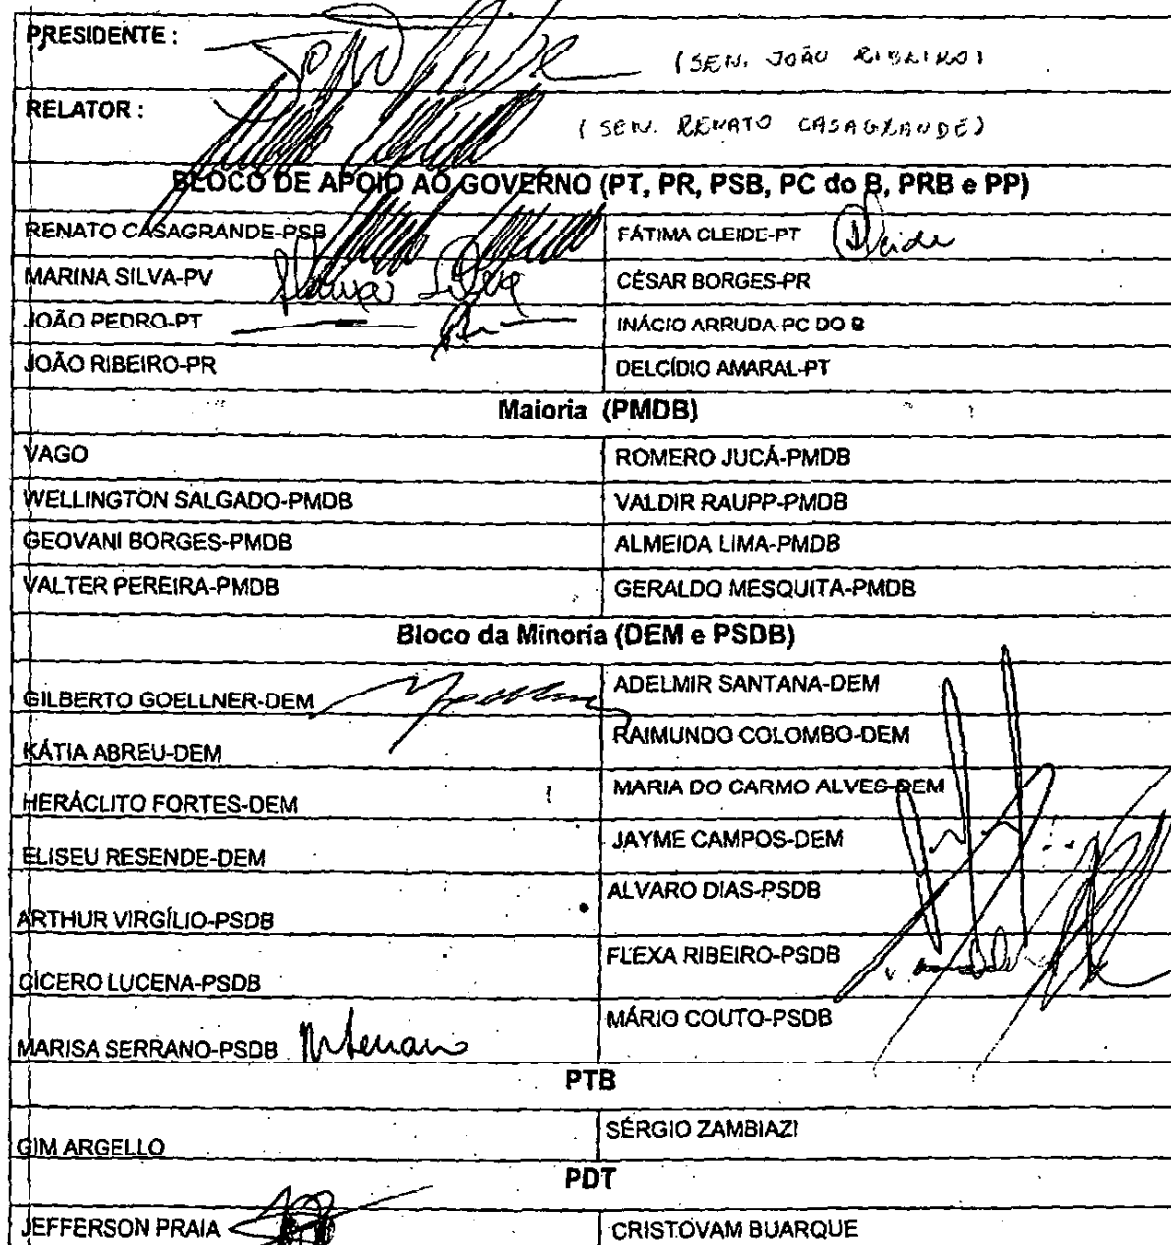 PRESIDENTE : (SEN. JOÃO RIBEIRO)
RELATOR : (SEN. RENATO CASAGRANDE)
BLOCO DE APOIO AO GOVERNO (PT, PR, PSB, PC do B, PRB e PP)
RENATO CASAGRANDE-PSB FÁTIMA CLEIDE-PT
MARINA SILVA-PV Marina Silva CÉSAR BORGES-PR
JOÃO PEDRO-PT INÁCIO ARRUDA-PC DO B
JOÃO RIBEIRO-PR DELCÍDIO AMARAL-PT
Maioria (PMDB)
VAGO ROMERO JUCÁ-PMDB
WELLINGTON SALGADO-PMDB VALDIR RAUPP-PMDB
GEOVANI BORGES-PMDB ALMEIDA LIMA-PMDB
VALTER PEREIRA-PMDB GERALDO MESQUITA-PMDB
Bloco da Minoria (DEM e PSDB)
GILBERTO GOELLNER-DEM ADELMIR SANTANA-DEM
KÁTIA ABREU-DEM RAIMUNDO COLOMBO-DEM
HERÁCLITO FORTES-DEM MARIA DO CARMO ALVES-DEM
ELISEU RESENDE-DEM JAYME CAMPOS-DEM
ARTHUR VIRGÍLIO-PSDB ALVARO DIAS-PSDB
CÍCERO LUCENA-PSDB FLEXA RIBEIRO-PSDB
MARISA SERRANO-PSDB MÁRIO COUTO-PSDB
PTB
GIM ARGELLO SÉRGIO ZAMBIAZI
PDT
JEFFERSON PRAIA CRISTOVAM BUARQUE